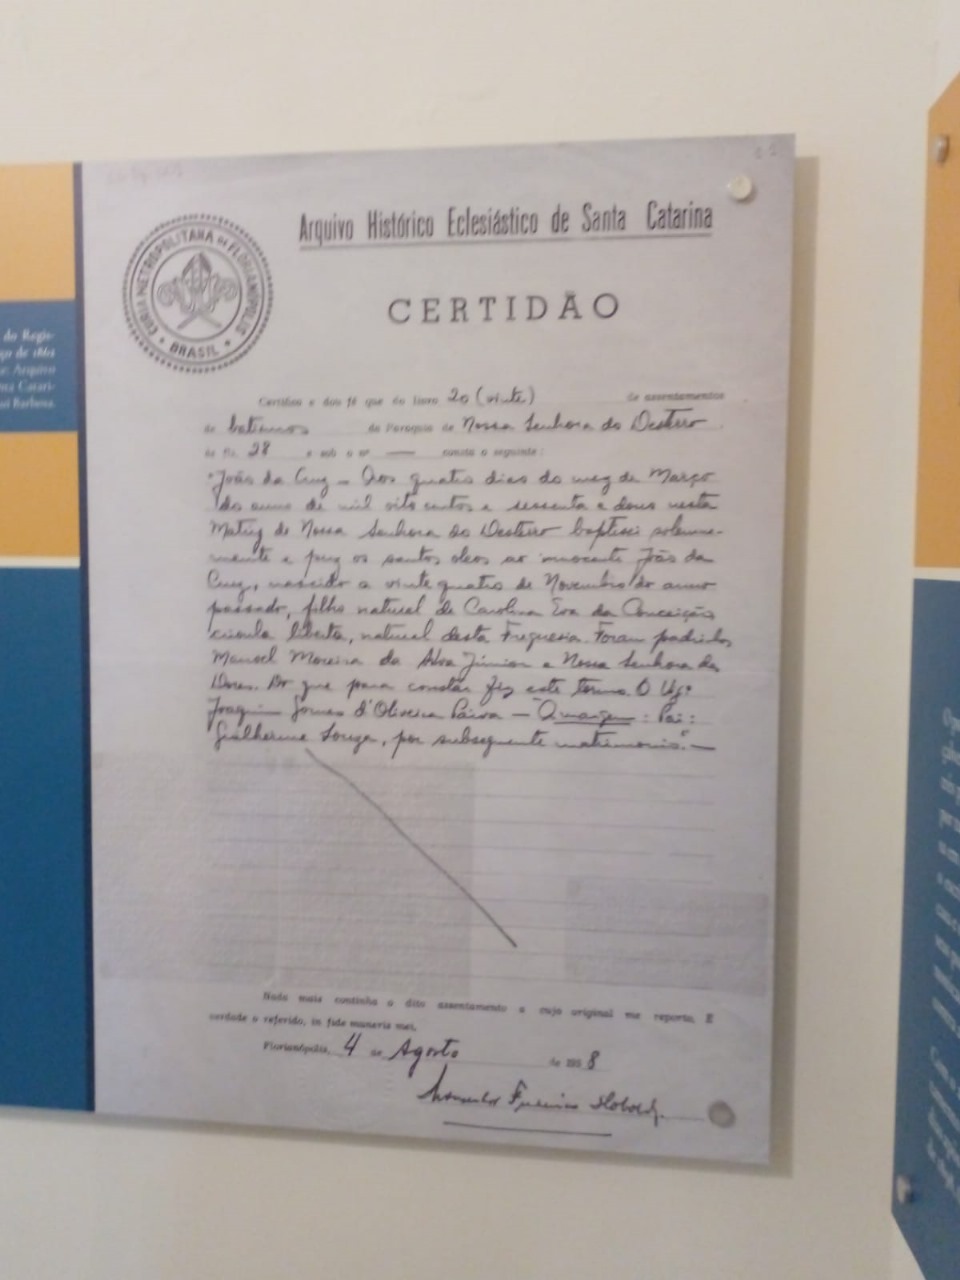 Arquivo Histórico Eclesiástico de Santa Catarina
CURIA METROPOLITANA DE FLORIANÓPOLIS
• BRASIL •
CERTIDÃO
Certifico e dou fé que do livro 20 (vinte) de assentamentos
de batismos da Paroquia de Nossa Senhora do Desterro
de fls. 28 e sob o nº — consta o seguinte:
"João da Cruz – Aos quatro dias do mez de Março
do anno de mil oito centos e sessenta e dous nesta
Matriz de Nossa Senhora do Desterro baptisei solemne-
mente e puz os santos oleos ao innocente João da
Cruz, nascido a vinte quatro de Novembro do anno
passado, filho natural de Carolina Eva da Conceição
crioula liberta, natural desta Freguesia. Foram padrinhos
Manoel Moreira da Silva Júnior e Nossa Senhora das
Dores. Do que para constar fiz este termo. O Vigº
Joaquim Gomes d'Oliveira Paiva – "Á margem: Pai:
Guilherme Souza, por subsequente matrimonio." —
Nada mais continha o dito assentamento a cujo original me reporto. E
verdade o referido, in fide muneris mei.
Florianópolis, 4 de Agosto de 1958
do Regis-
ço de 1862
Arquivo
nta Catari-
ui Barbosa.